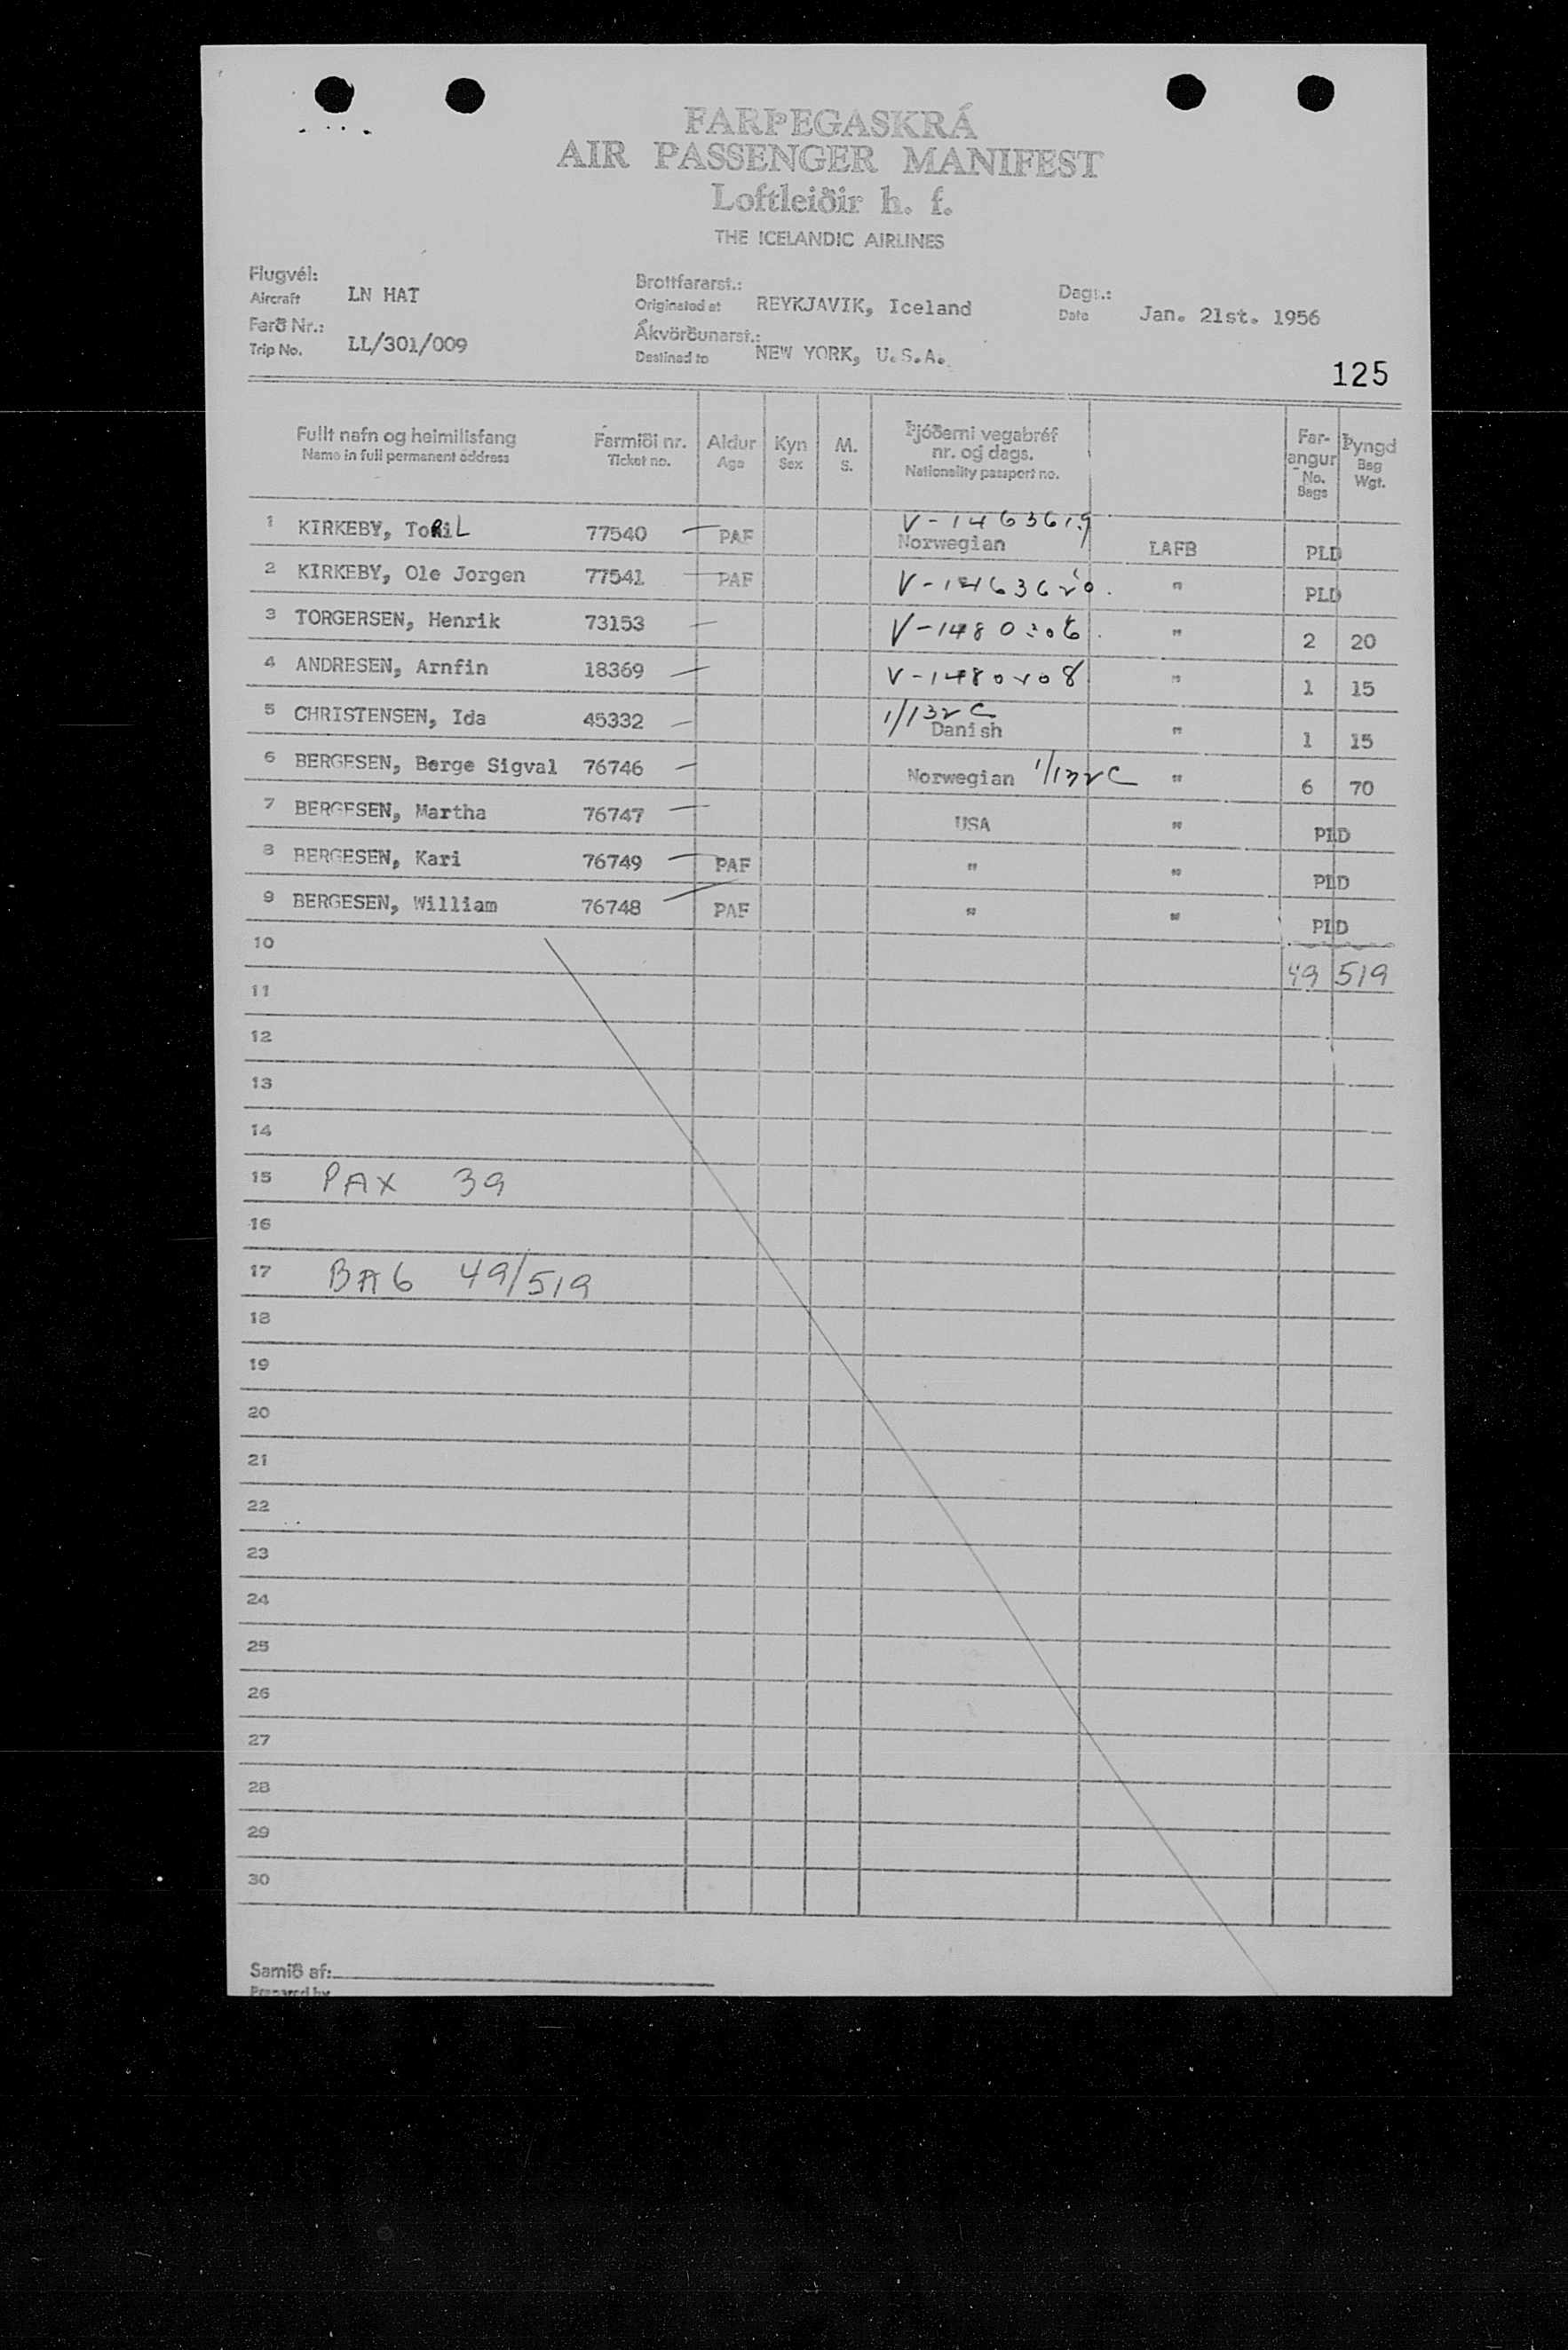 FARÞEGASKRÁ
AIR PASSENGER MANIFEST
Loftleiðir h. f.
THE ICELANDIC AIRLINES
Flugvél:
Aircraft LN HAT
Brottfararst.:
Originated at REYKJAVIK, Iceland
Dags.:
Date Jan. 21st. 1956
Farð Nr.:
Trip No. LL/301/009
Ákvörðunarst.:
Destined to NEW YORK, U.S.A.
125
Fullt nafn og heimilisfang
Name in full permanent address
Farmiði nr.
Ticket no.
Aldur
Age
Kyn
Sex
M.
S.
Þjóðerni vegabréf
nr. og dags.
Nationality passport no.
Far-
angur
No.
Bags
Þyngd
Bag
Wgt.
V-1463619
1 KIRKEBY, ToRiL 77540 PAF Norwegian LAFB PLD
2 KIRKEBY, Ole Jorgen 77541 PAF V-1463620 " PLD
3 TORGERSEN, Henrik 73153 V-1480206 " 2 20
4 ANDRESEN, Arnfin 18369 V-1480208 " 1 15
1/132C
5 CHRISTENSEN, Ida 45332 Danish " 1 15
6 BERGESEN, Berge Sigval 76746 Norwegian 1/132C " 6 70
7 BERGESEN, Martha 76747 USA " PLD
8 BERGESEN, Kari 76749 PAF " " PLD
9 BERGESEN, William 76748 PAF " " PLD
10
49 519
11
12
13
14
15 PAX 39
16
17 BAG 49/519
18
19
20
21
22
23
24
25
26
27
28
29
30
Samið af:
Prepared by